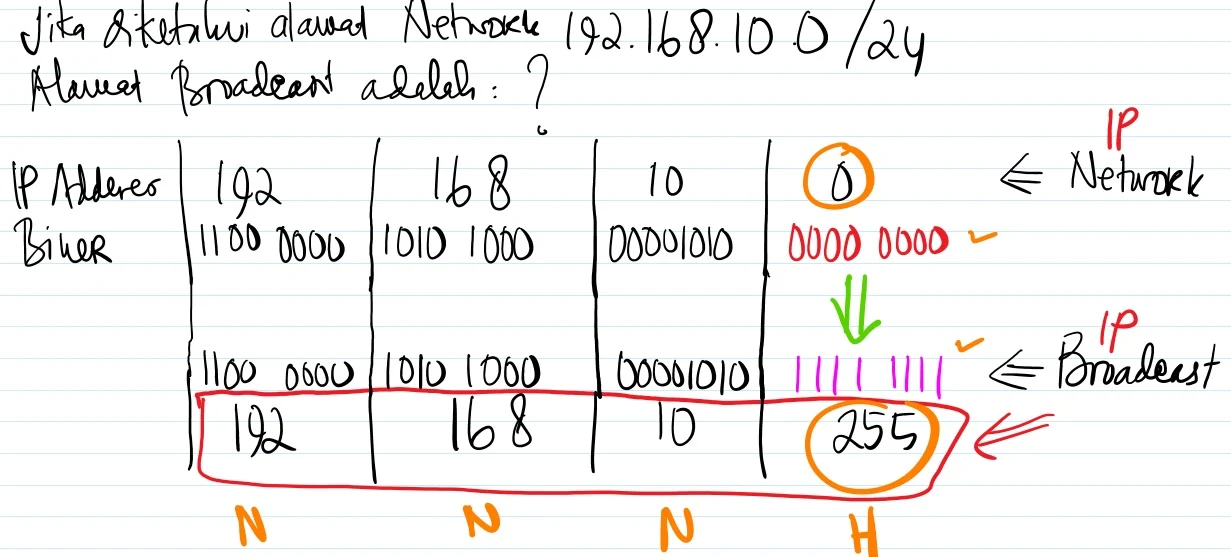 Jika diketahui alamat Network 192.168.10.0/24
Alamat Broadcast adalah : ?
IP
IP Adderes 192 168 10 0 ⇐ Network
Biner 1100 0000 1010 1000 00001010 0000 0000 ✓
⇓ IP
1100 0000 1010 1000 00001010 1111 1111 ✓ ⇐ Broadcast
192 168 10 255 ⇐
N N N H